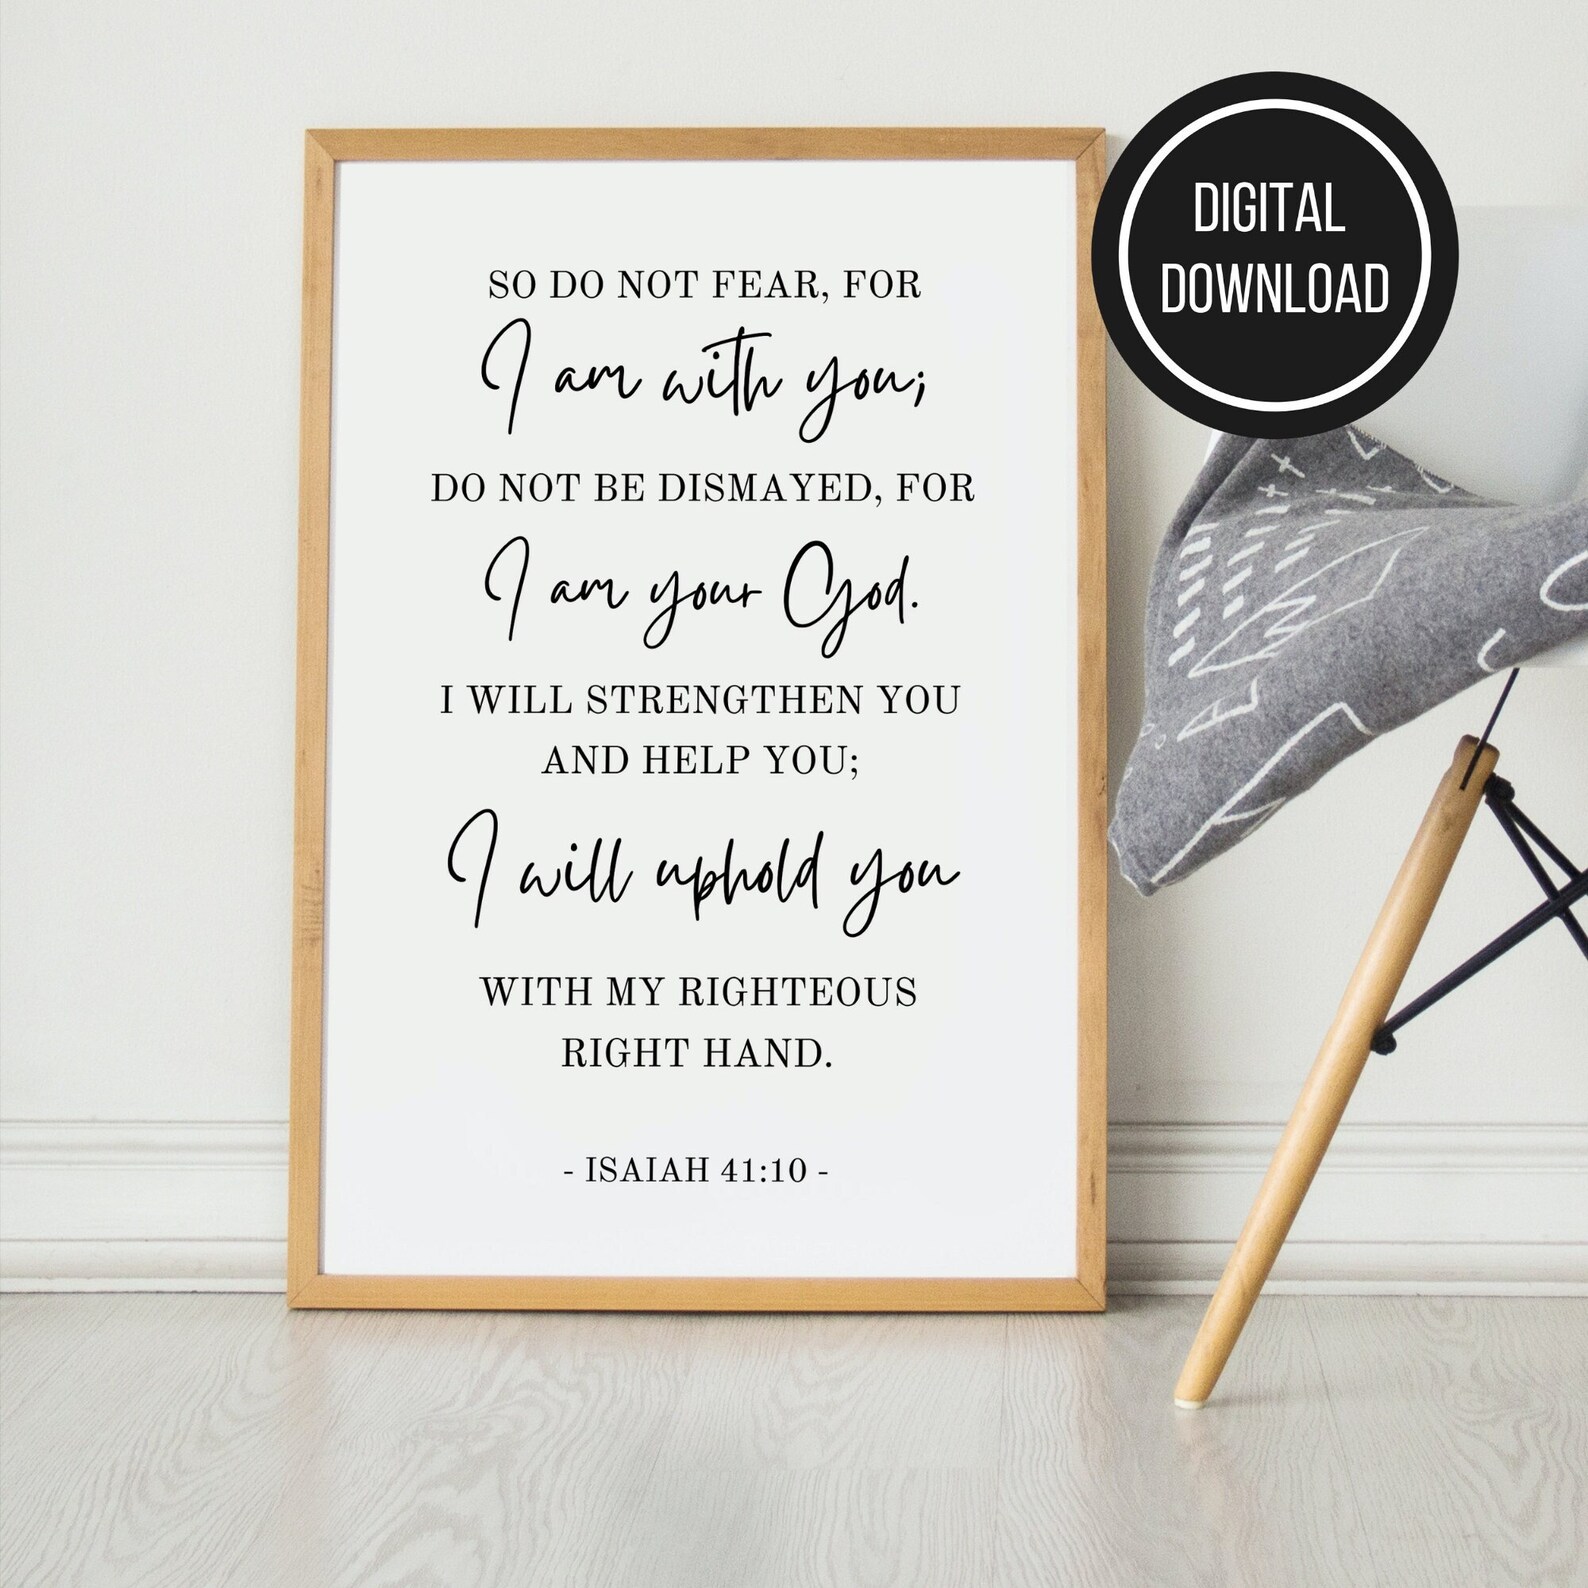 SO DO NOT FEAR, FOR
I am with you;
DO NOT BE DISMAYED, FOR
I am your God.
I WILL STRENGTHEN YOU
AND HELP YOU;
I will uphold you
WITH MY RIGHTEOUS
RIGHT HAND.
- ISAIAH 41:10 -
DIGITAL
DOWNLOAD